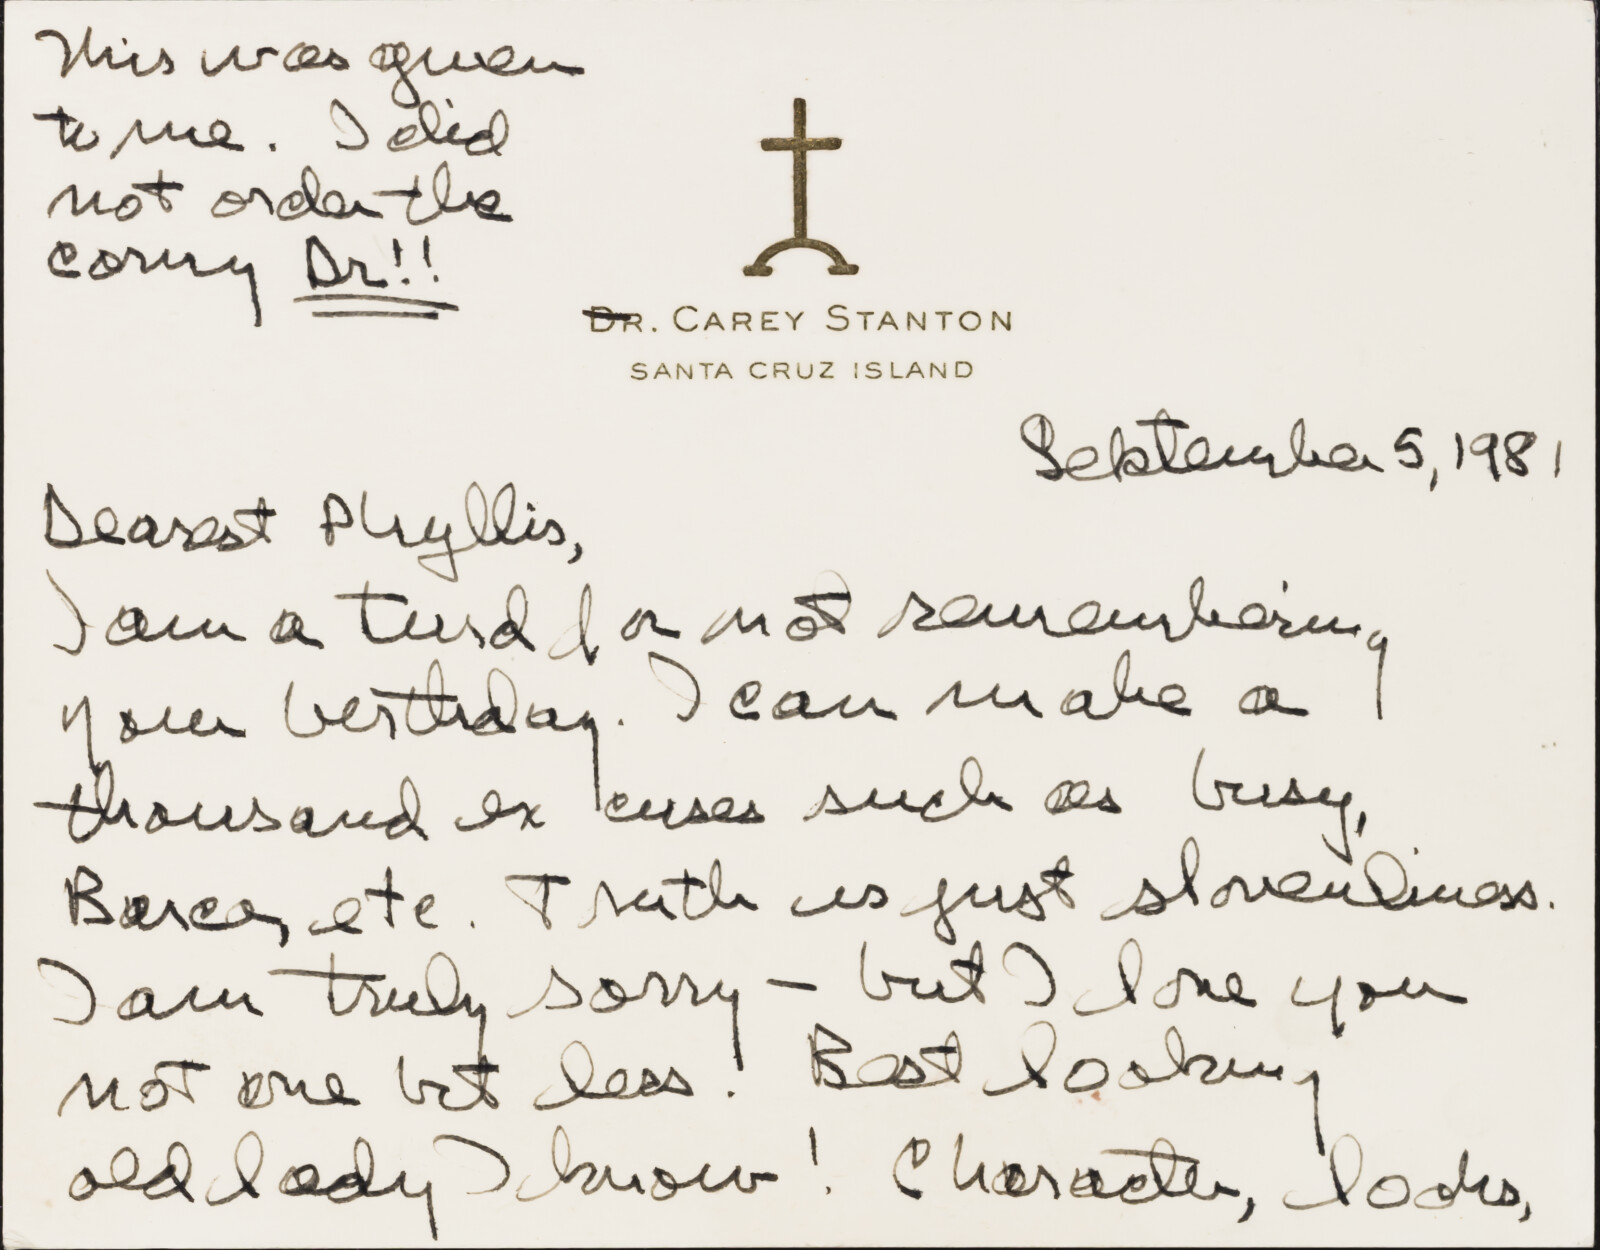 This was given
to me. I did
not order the
corny Dr!!
DR. CAREY STANTON
SANTA CRUZ ISLAND
September 5, 1981
Dearest Phyllis,
I am a turd for not remembering
your birthday. I can make a
thousand excuses such as busy,
Barca, etc. Truth is just slovenliness.
I am truly sorry – but I love you
not one bit less! Best looking
old lady I know! Character, looks,